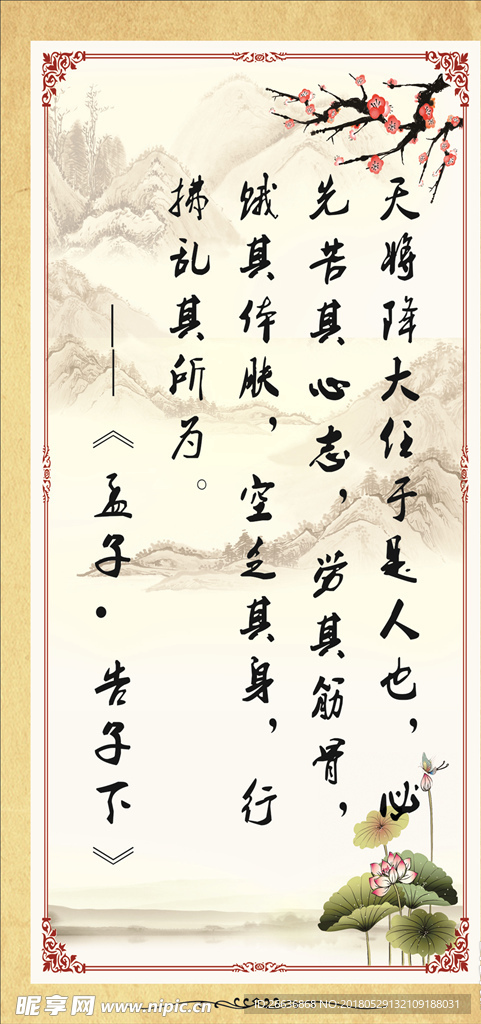 天将降大任于是人也，必
先苦其心志，劳其筋骨，
饿其体肤，空乏其身，行
拂乱其所为。
——《孟子·告子下》
昵享网 www.nipic.cn
ID:26636868 NO:20180529132109188031